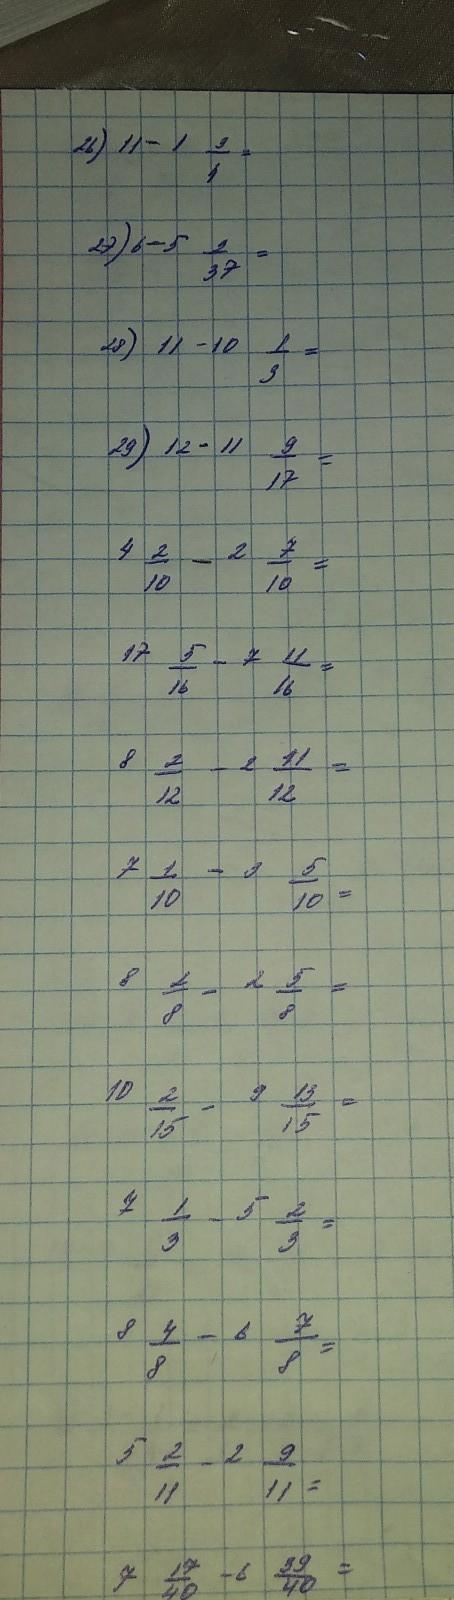 26) 11 - 1 3/4 =
27) 6 - 5 2/37 =
28) 11 - 10 1/3 =
29) 12 - 11 9/17 =
4 2/10 - 2 7/10 =
17 5/16 - 7 11/16 =
8 2/12 - 2 11/12 =
7 1/10 - 3 5/10 =
8 1/8 - 2 5/8 =
10 2/15 - 9 13/15 =
7 1/3 - 5 2/3 =
8 4/8 - 6 7/8 =
5 2/11 - 2 9/11 =
7 17/40 - 6 39/40 =